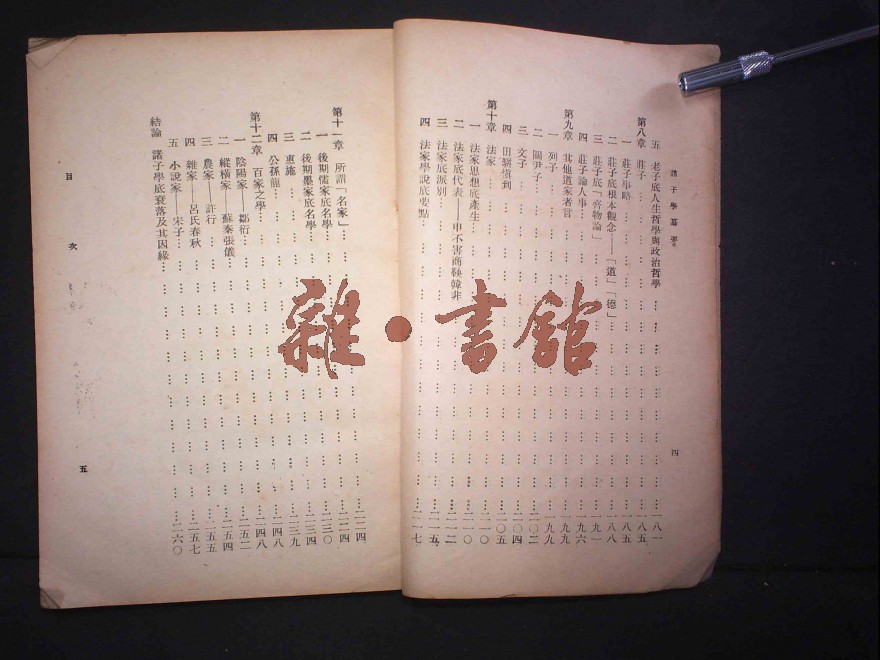 諸子學纂要
五 老子底人生哲學與政治哲學……一八一
第八章 莊子……一八五
一 莊子事略……一八五
二 莊子底根本觀念——「道」「德」……一八八
三 莊子底「齊物論」……一九一
四 莊子論人事……一九六
第九章 其他道家者言……一九九
一 列子……一九九
二 關尹子……二〇二
三 文子……二〇四
四 田駢慎到……二〇五
第十章 法家……二一〇
一 法家思想底產生……二一〇
二 法家底代表——申不害商鞅韓非……二一二
三 法家底派別……二一五
四 法家學說底要點……二一七
四
第十一章 所謂「名家」……二二四
一 後期儒家底名學……二三〇
二 後期墨家底名學……二三四
三 惠施……二三九
四 公孫龍……二四八
第十二章 百家之學……二四八
一 陰陽家——鄒衍……二五二
二 縱橫家——蘇秦張儀……二五四
三 農家——許行……二五五
四 雜家——呂氏春秋……二五七
五 小說家——宋子……二六〇
結論 諸子學底衰落及其因緣……
目次
五
雜·書館